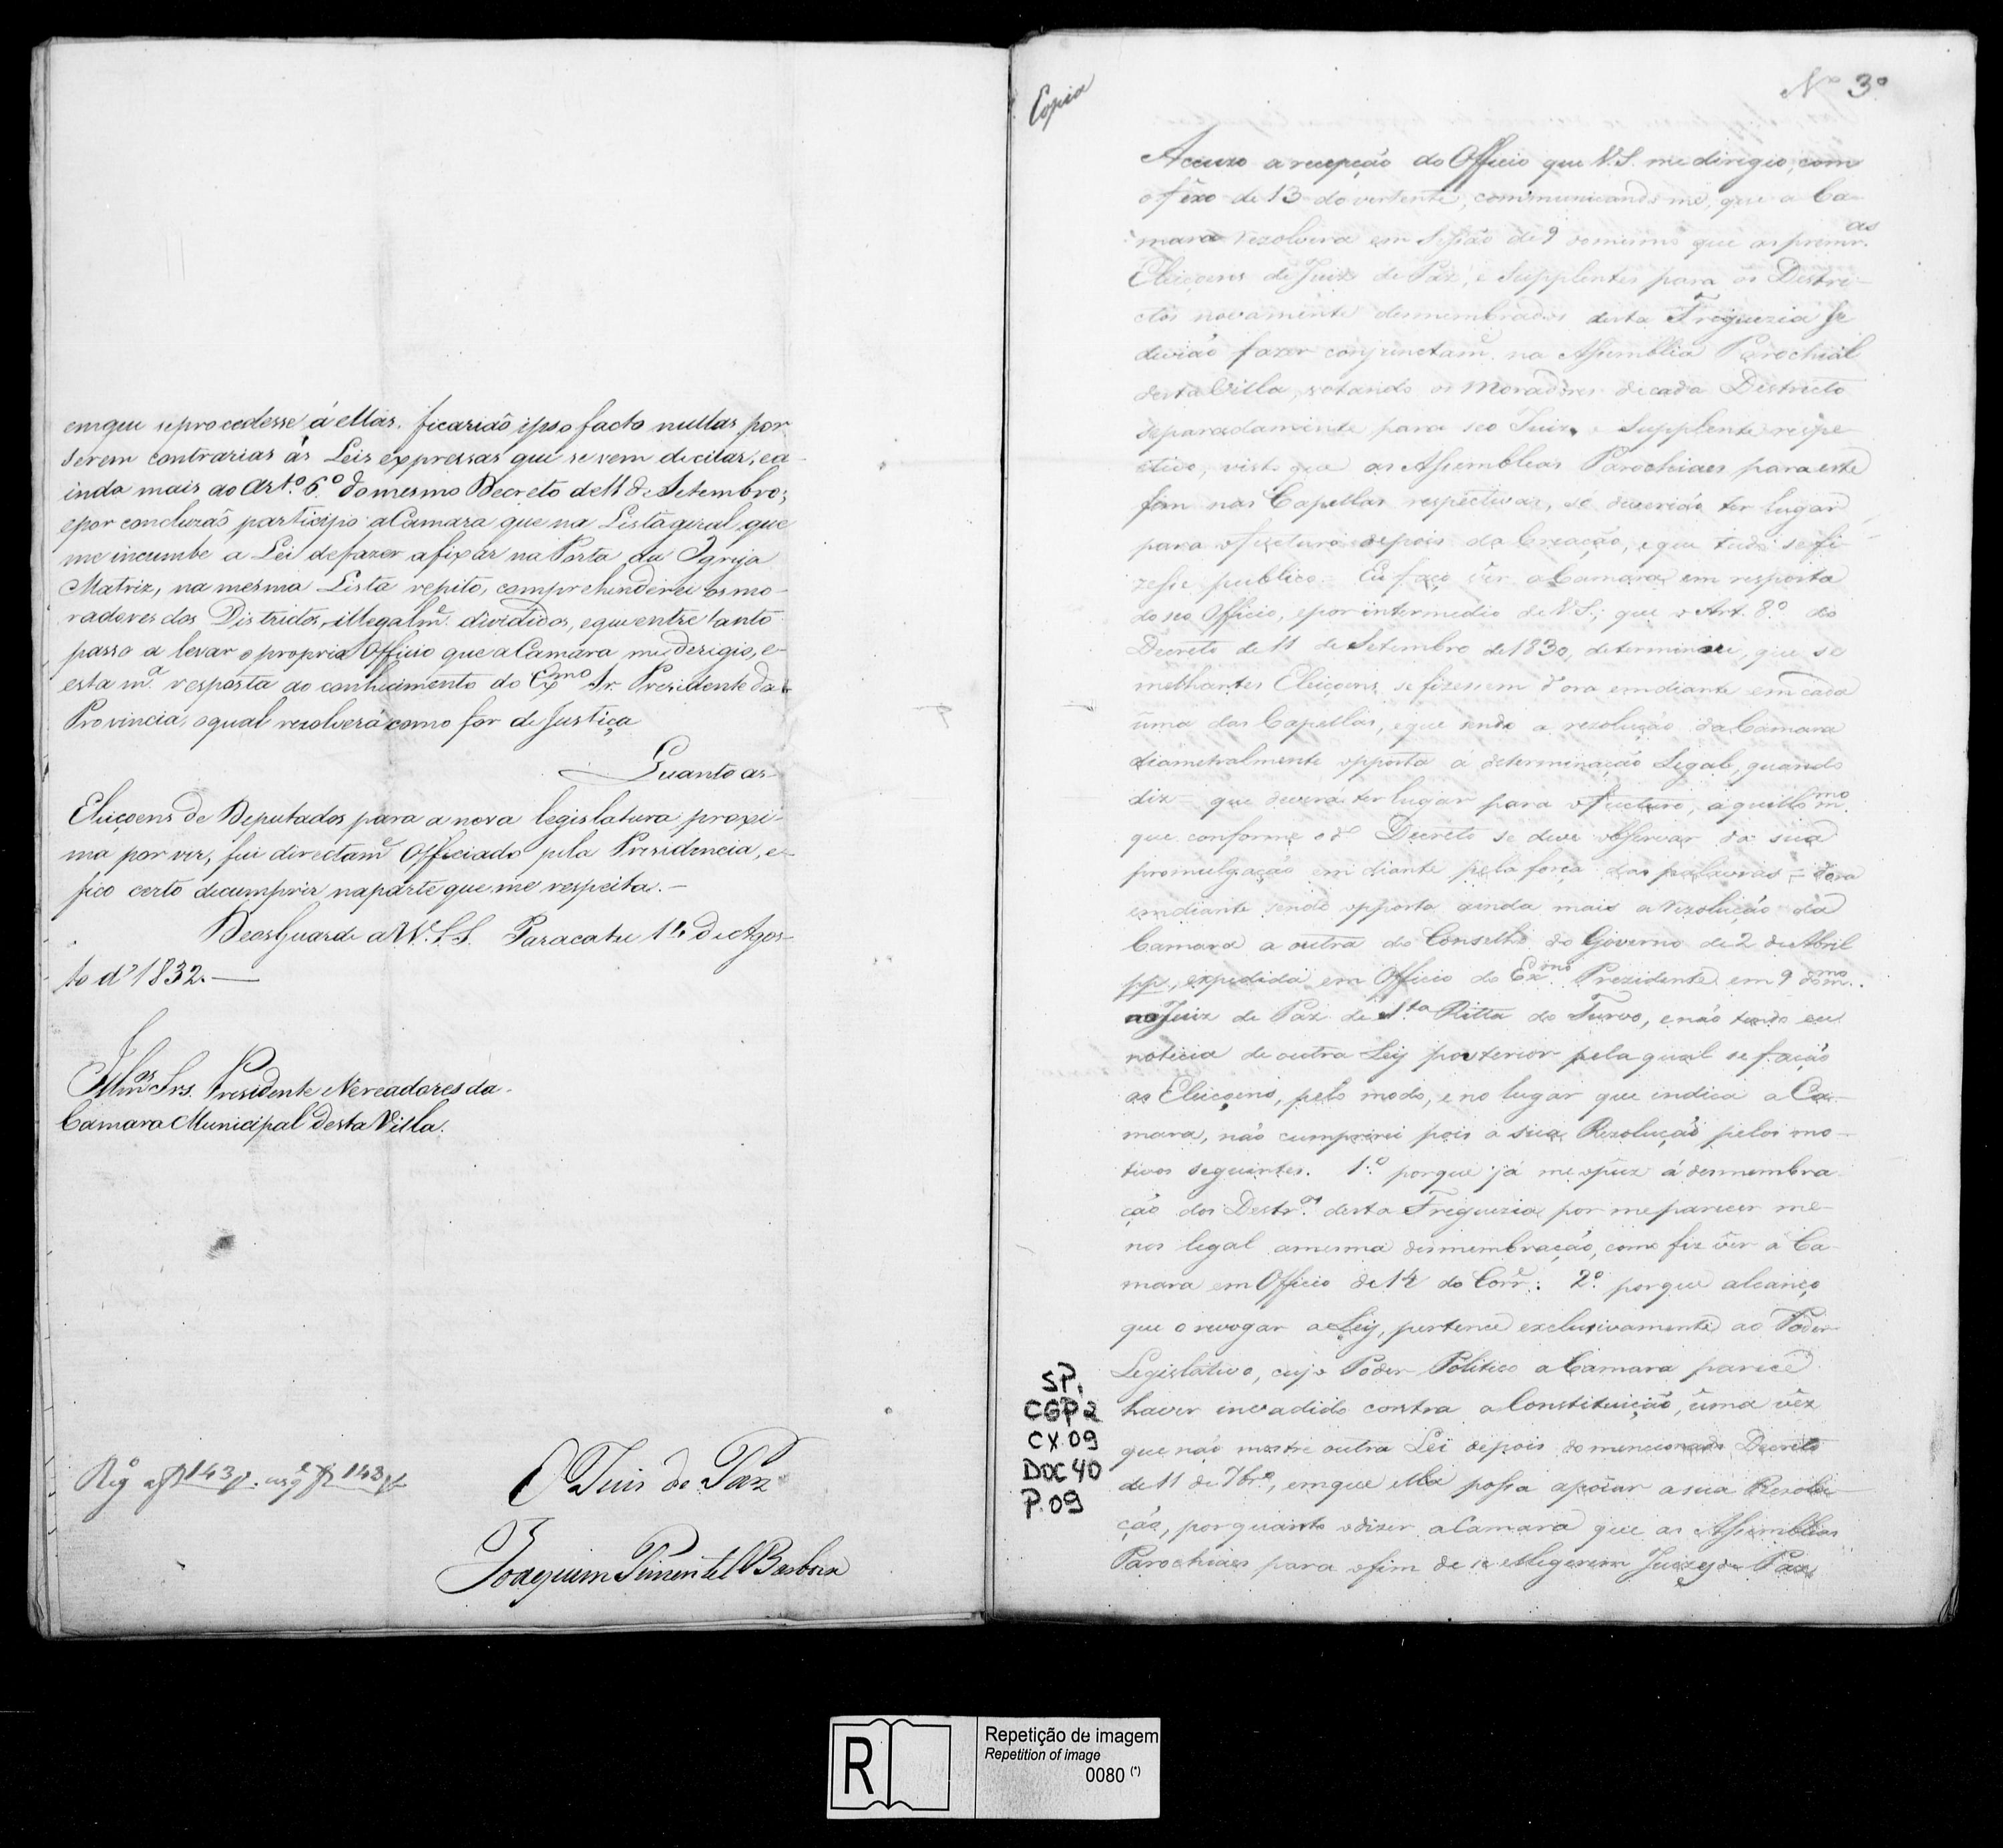 emque se procedesse á ellas, ficarião ipso facto nullas por
serem contrarias ás Leis expressas que se vem de citar, ea-
inda mais ao Art.º 6.º do mesmo Decreto de 11 de Setembro;
e por concluzão participo a Camara que na Lista geral que
me incumbe a Lei de fazer afixar na Porta da Igreja
Matriz, na mesma Lista repito, comprehenderei os mo-
radores dos Districtos illegalm.e divididos, e que entre tanto
passo a levar o proprio Officio que a Camara me derigio, e
esta m.a resposta ao conhecimento do Ex.mo Sr. Presidente da
Provincia, o qual rezolverá como for de Justiça
Quanto as
Eleiçoens de Deputados para a nova legislatura proxi-
ma por vir, fui directam.e Officiado pela Presidencia, e
fico certo de cumprir na parte que me respeita. -
Deos Guarde a V. S. S. Paracatu 14 de Agos-
to d' 1832. —
Illm.os Srs. Presidente Vereadores da
Camara Municipal desta Villa.
Reg a f 143 v. usq e f 143 v
O Juis de Paz
Joaquim Pimentel Barboza
Copia
Nº 3º
Accuzo a recepção do Officio que V. S. me dirigio, com
o fixo de 13 do vertente, communicando me, que a Ca-
mara rezolvera em Sessão de 9 do mesmo que as prim.ras
Eleiçoens de Juiz de Paz, e Supplentes para os Distri-
ctos novamente desmembrados desta Freguezia se
devião fazer conjunctam.e na Assemblia Parochial
desta Villa, votando os Moradores de cada Districto
separadamente para seo Juiz, e Supplente respe-
ctivo, visto que as Assembleas Parochiaes para este
fim nas Capellas respectivas, só deverião ter lugar
para o futuro depois da Creação, e que tudo se fi-
zesse publico. Eu faço ver a Camara em resposta
do seo Officio, e por intermedio de V. S.; que o Art. 8.º do
Decreto de 11 de Setembro de 1830, determinou, que se
melhantes Eleiçoens se fizessem d'ora em diante em cada
uma das Capellas, e que sendo a rezolução da Camara
diametralmente opposta á determinação Legal, quando
diz - que deverá ter lugar para o futuro, aquillo m.mo
que conforme o d.o Decreto se deve observar da sua
promulgação em diante pela força das palavras - d'ora
em diante sendo opposta ainda mais a rezolução da
Camara a outra do Conselho do Governo de 2 de Abril
pp., expedida em Officio do Ex.mo Prezidente em 9 do m.mo
ao Juiz de Paz de S.ta Ritta do Turvo, e não tendo eu
noticia de outra Ley posterior pela qual se fação
as Eleiçoens, pelo modo, e no lugar que indica a Ca-
mara, não cumprirei pois a sua Rezolução pelos mo-
tivos seguintes. 1.º porque já me opuz á desmembra-
ção dos Destr.os desta Freguezia por me parecer me-
nos legal a mesma desmembração, como fiz ver á Ca-
mara em Officio de 14 do Corr.e: 2.º porque alcanço
que o revogar a Ley, pertence exclusivamente ao Poder
Legislativo, cujo Poder Politico a Camara parece
haver invadido contra a Constituição, uma vez
que não mostre outra Lei depois do mencionado Decreto
de 11 de 7br.o, em que ella possa apoiar a sua Rezolu-
ção, porquanto o dizer a Camara que as Assembleas
Parochiaes para o fim de se ellegerem Juizes de Paz
SP.
CGP2
CX.09
DOC 40
P.09
R
Repetição de imagem
Repetition of image
0080 (*)